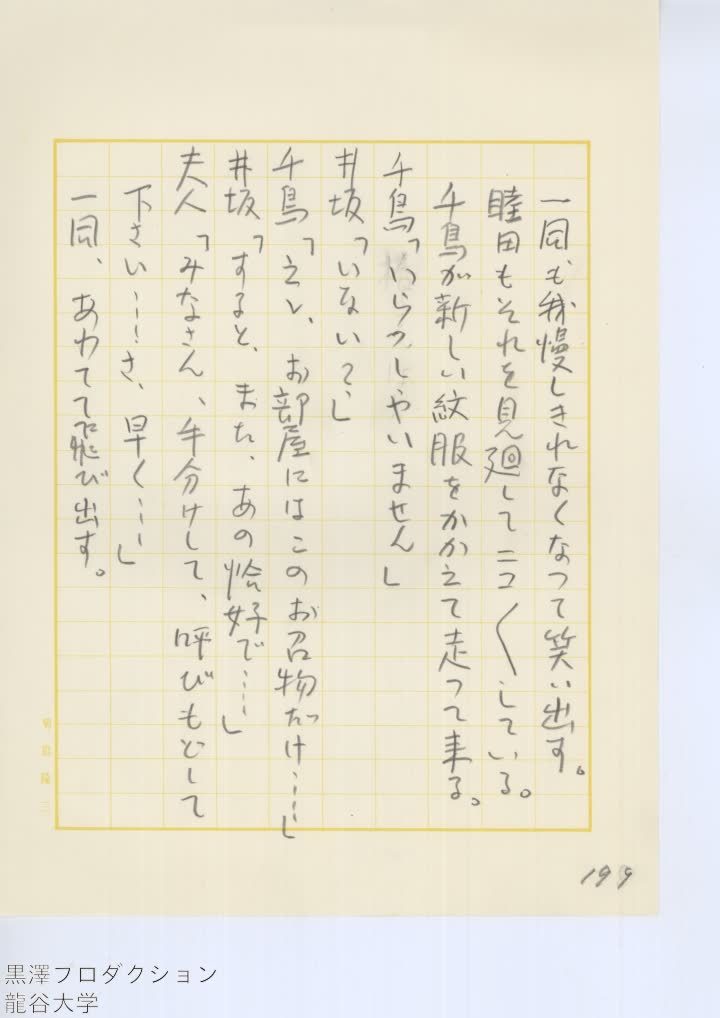 一同も我慢しきれなくなって笑い出す。
睦田もそれを見廻してニコ〱している。
千鳥が新しい紋服をかかえて走って来る。
千鳥「いらっしゃいません」
井坂「いない？」
千鳥「えゝ、お部屋にはこのお召物だけ……」
井坂「すると、また、あの恰好で……」
夫人「みなさん、手分けして、呼びもどして
下さい……さ、早く……」
一同、あわてて飛び出す。
199
黒澤プロダクション
龍谷大学